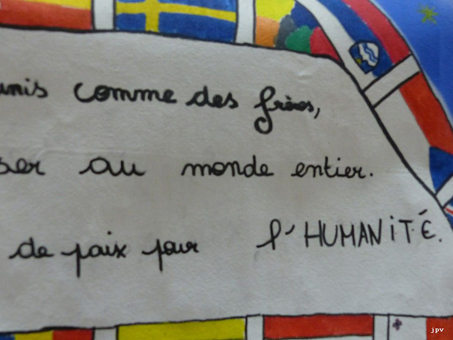 unis comme des frères,
ser au monde entier.
de paix pour l'HUMANITÉ.
jpv